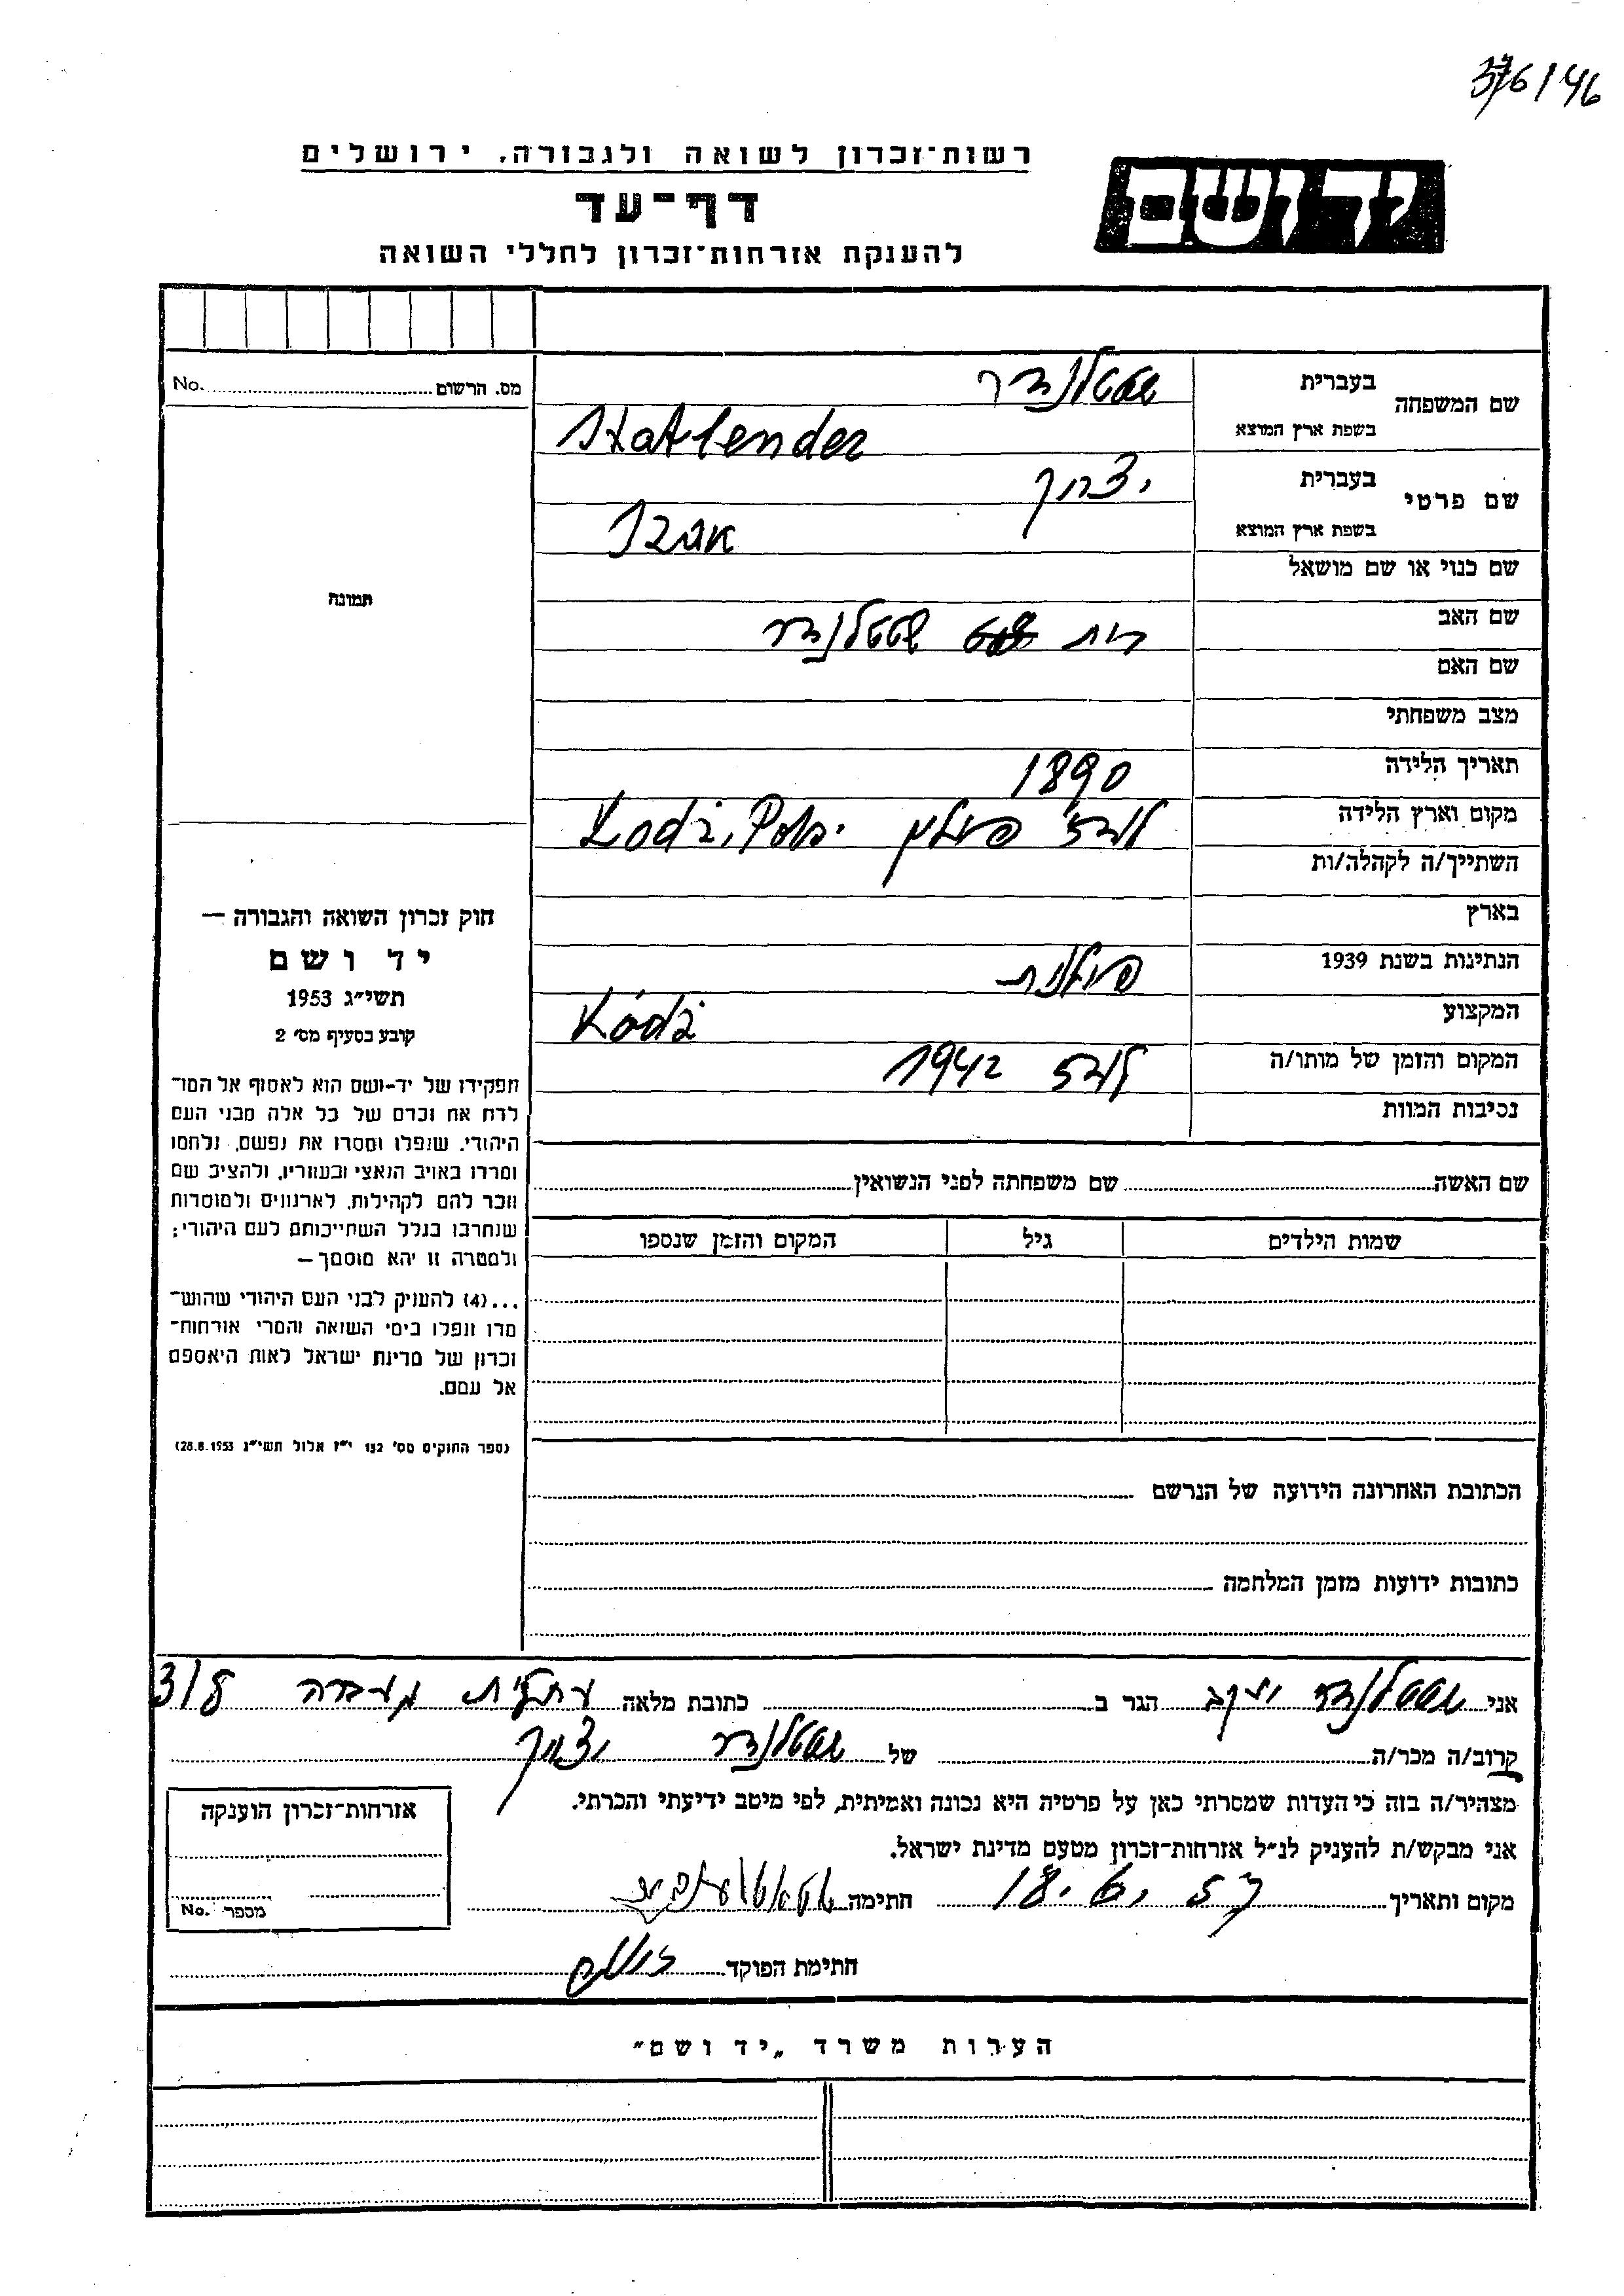 רשות־זכרון לשואה ולגבורה, ירושלים
יד ושם
דף־עד
להענקת אזרחות־זכרון לחללי השואה
No. מס. הרשום
תמונה
שם המשפחה
בעברית שטטלנדר
בשפת ארץ המוצא Statlender
שם פרטי
בעברית יצחק
בשפת ארץ המוצא
שם כנוי או שם מושאל
שם האב שטטלנדר
שם האם
מצב משפחתי
תאריך הלידה 1890
מקום וארץ הלידה לודז' פולין Łodż, Pol.
השתייך/ה לקהלה/ות
בארץ
הנתינות בשנת 1939 פולנית
המקצוע
Łódż
המקום והזמן של מותו/ה לודז 1942
נסיבות המוות
חוק זכרון השואה והגבורה —
יד ושם
תשי״ג 1953
קובע בסעיף מס׳ 2
תפקידו של יד-ושם הוא לאסוף אל המו־
לדת את זכרם של כל אלה מבני העם
היהודי, שנפלו ומסרו את נפשם, נלחמו
ומרדו באויב הנאצי ובעוזריו, ולהציב שם
וזכר להם לקהילות, לארגונים ולמוסדות
שנחרבו בגלל השתייכותם לעם היהודי;
ולמטרה זו יהא מוסמך —
...(4) להעניק לבני העם היהודי שהוש־
מדו ונפלו בימי השואה והמרי אזרחות־
זכרון של מדינת ישראל לאות היאספם
אל עמם.
(ספר החוקים מס׳ 132 י״ז אלול תשי״ג 28.8.1953)
שם האשה שם משפחתה לפני הנשואין
שמות הילדים גיל המקום והזמן שנספו
הכתובת האחרונה הידועה של הנרשם
כתובות ידועות מזמן המלחמה
אני שטטלנדר יעקב הגר ב כתובת מלאה עתלית מעברה 3/8
קרוב/ה מכר/ה של שטטלנדר יצחק
מצהיר/ה בזה כי העדות שמסרתי כאן על פרטיה היא נכונה ואמיתית, לפי מיטב ידיעתי והכרתי.
אני מבקש/ת להעניק לנ״ל אזרחות־זכרון מטעם מדינת ישראל.
מקום ותאריך 18.6.57 חתימה
חתימת הפוקד
אזרחות־זכרון הוענקה
No. מספר
הערות משרד „יד ושם״